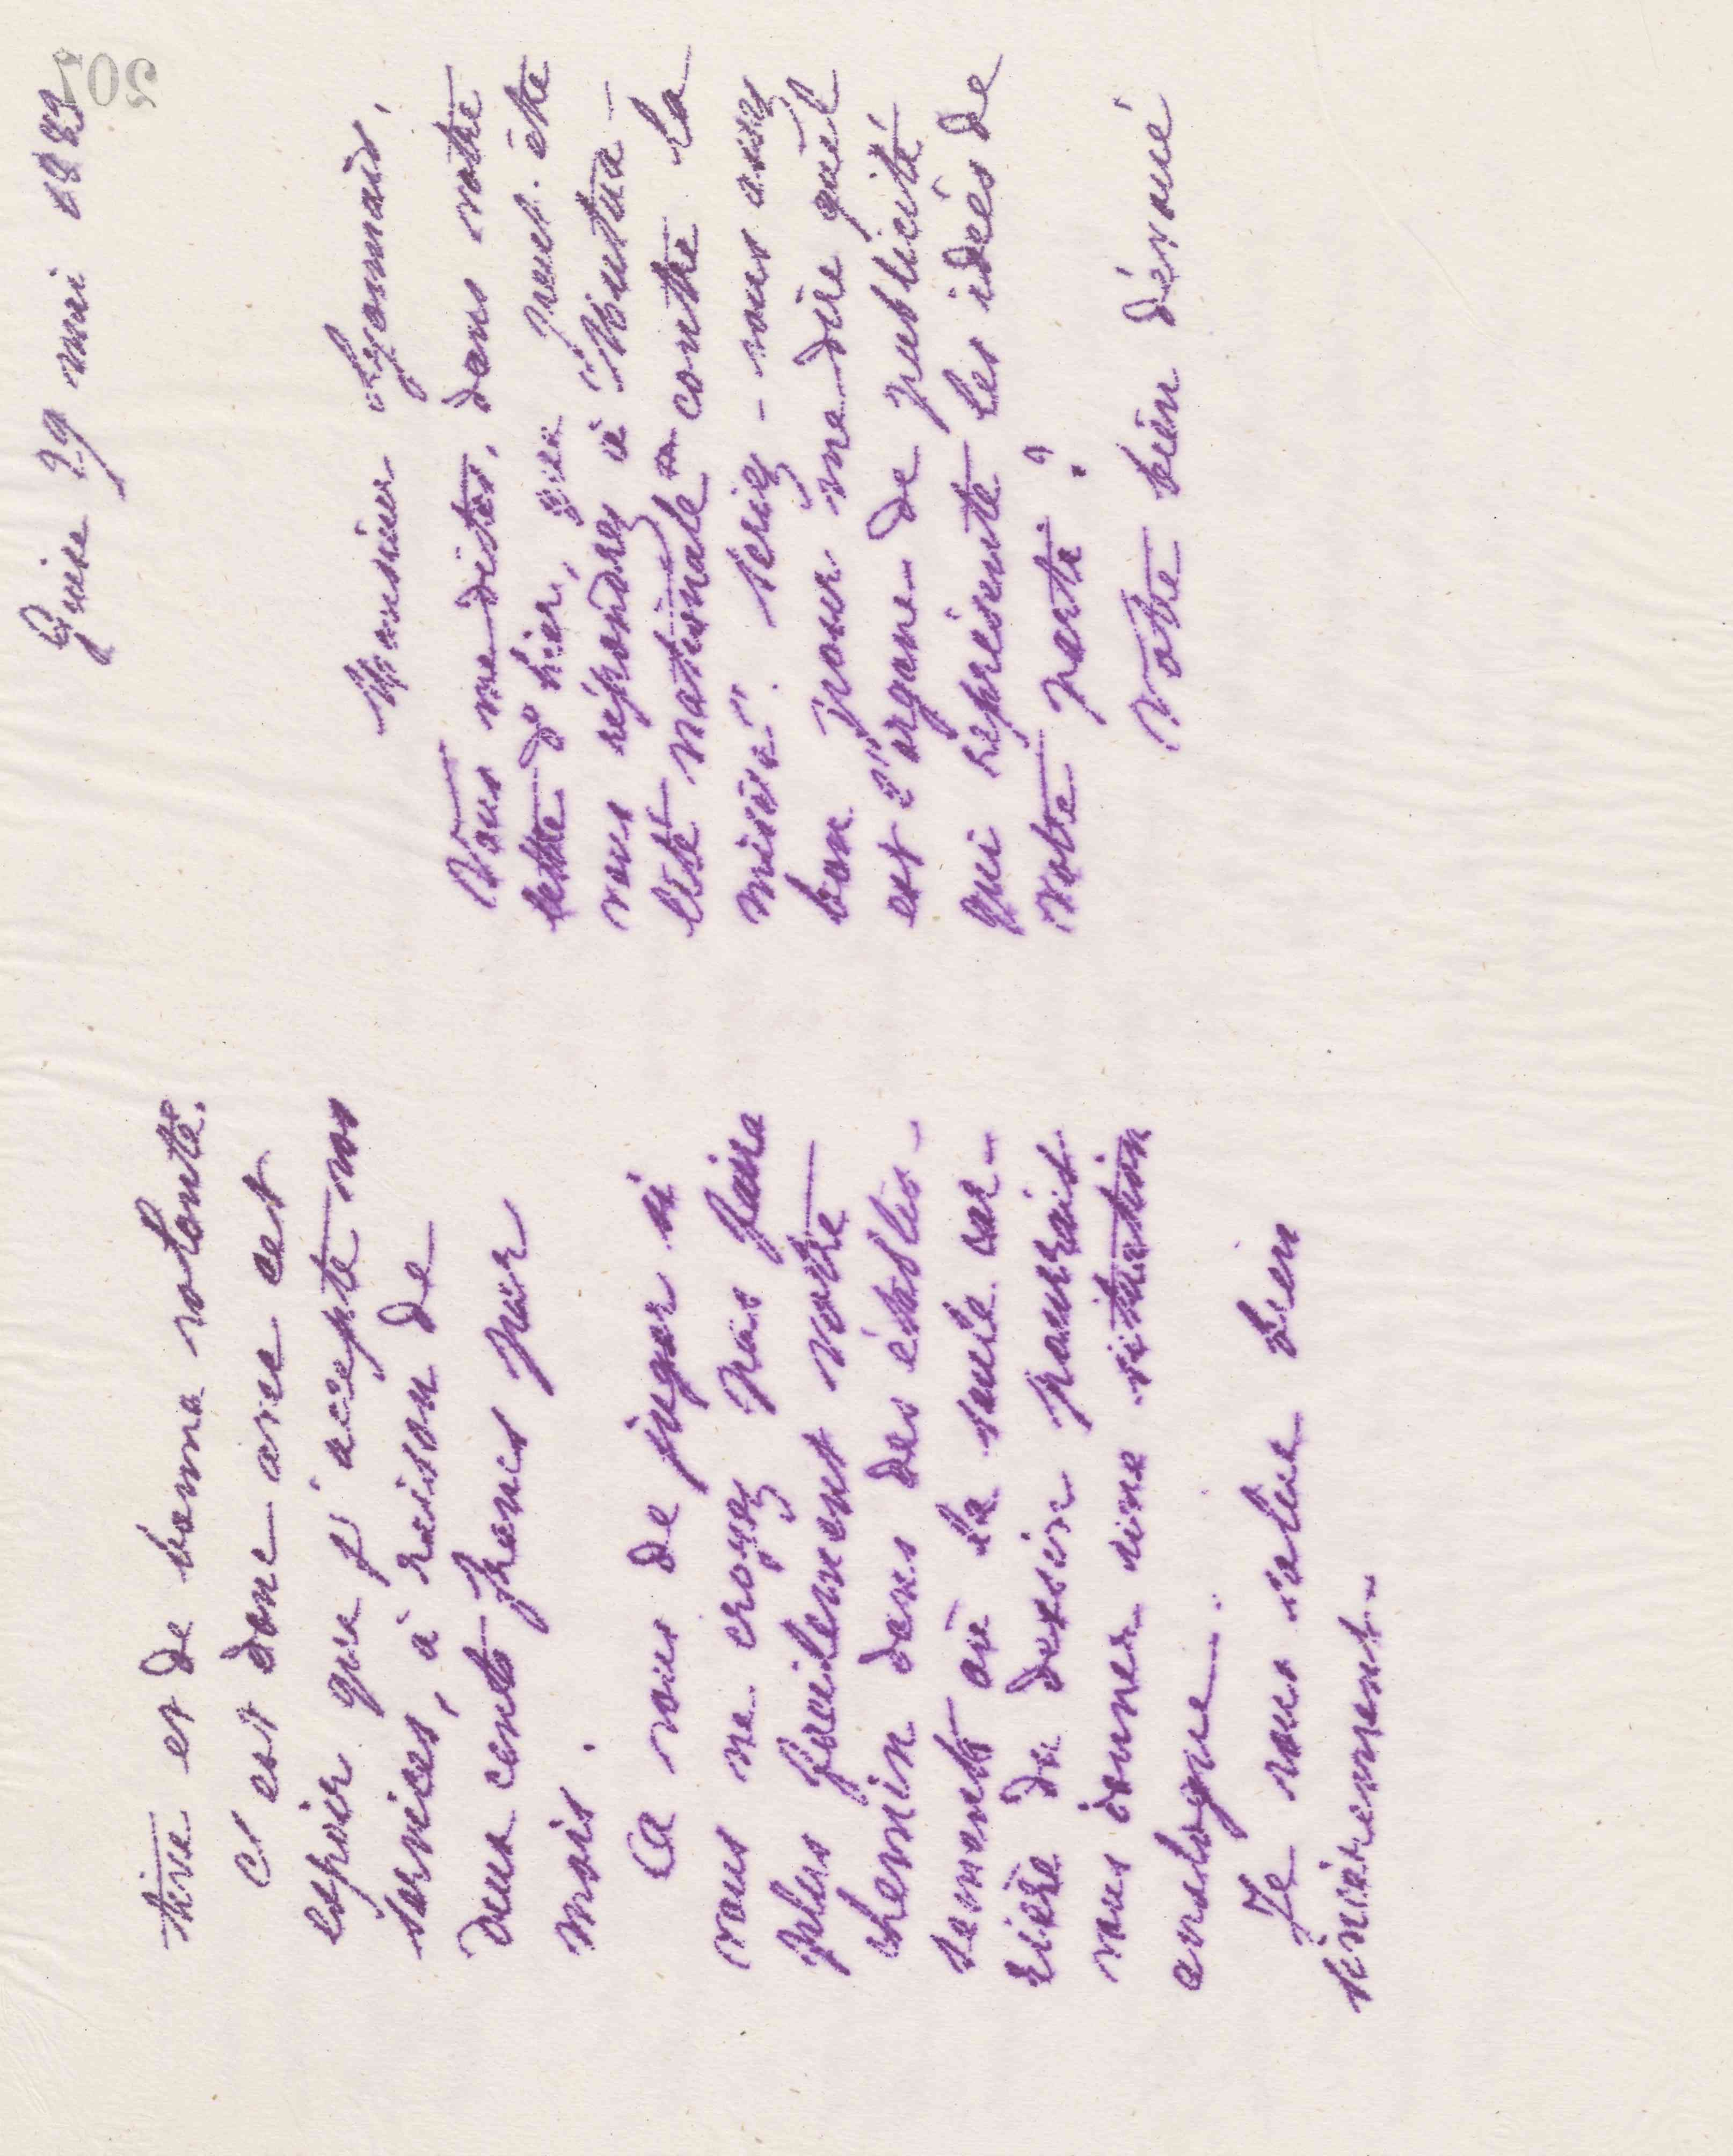 tive et de bonne volonté.
C'est donc avec cet
espoir que j'accepte vos
services, à raison de
deux cents francs par
mois.
A vous de juger si
vous ne croyez pas faire
plus facilement votre
chemin dans des établis-
sements où la seule car-
rière du dessin pourrait
vous donner une situation
analogue.
Je vous salue bien
sincèrement.
207
Guise 29 mai 1883
Monsieur Lyonnais,
Vous me dites, dans votre
lettre d'hier, que peut-être
vous répondrez à "Mutua-
lité nationale contre la
misère". Seriez-vous assez
bon pour me dire quel
est l'organe de publicité
qui représente les idées de
votre parti?
Votre bien dévoué